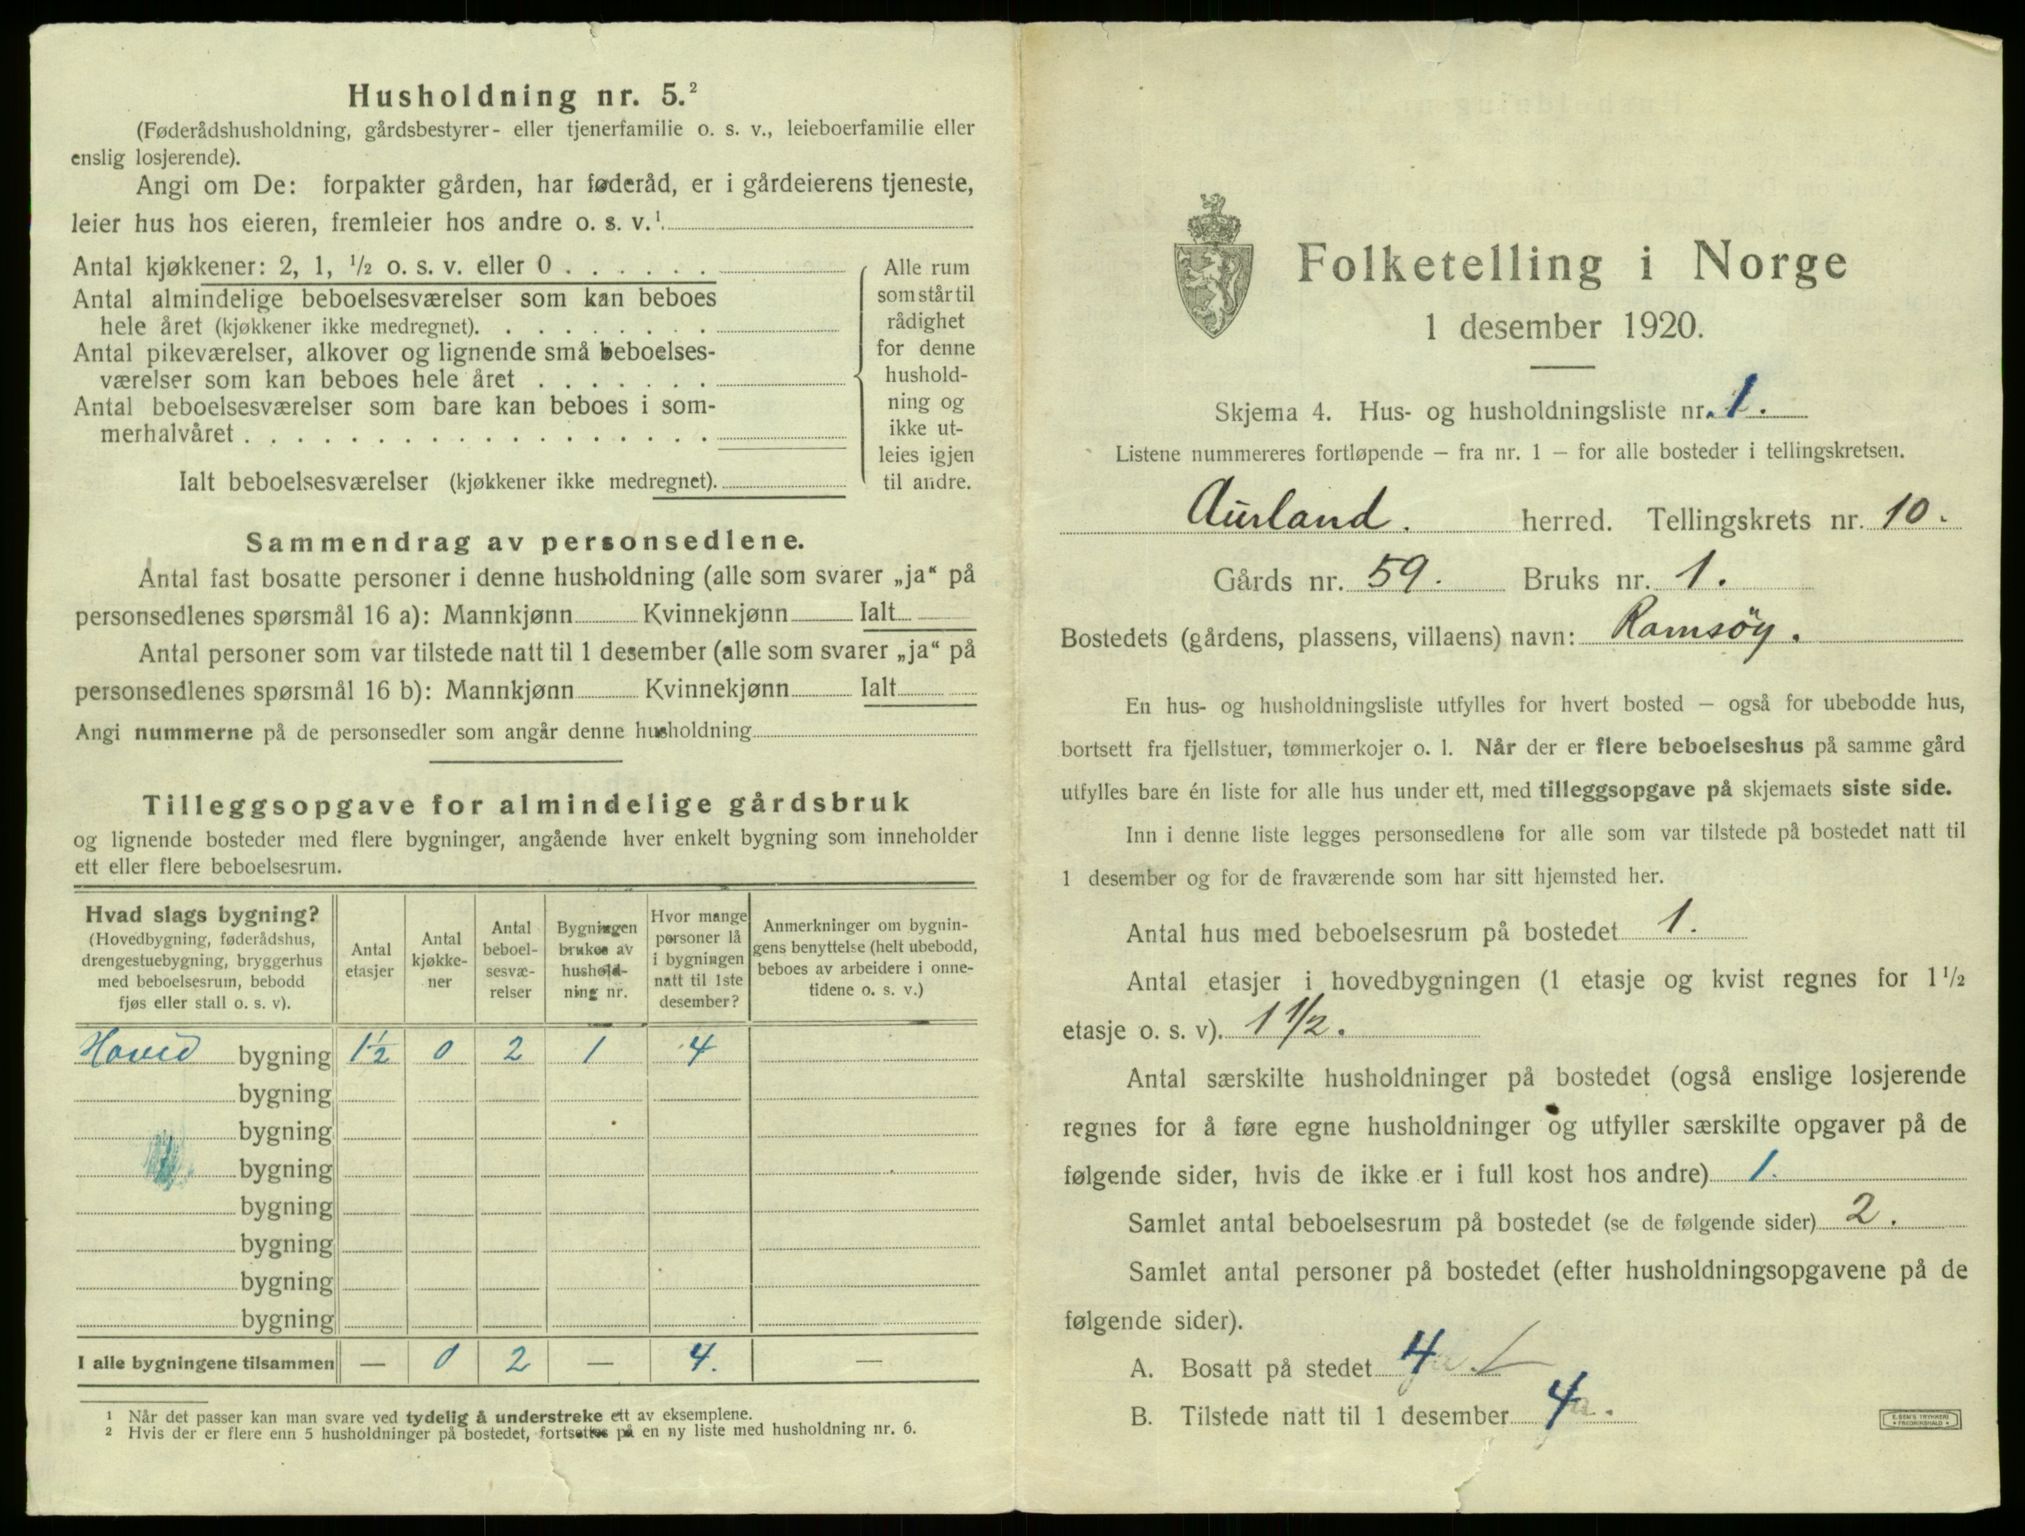 Husholdning nr. 5.²
(Føderådshusholdning, gårdsbestyrer- eller tjenerfamilie o. s. v., leieboerfamilie eller
enslig losjerende).
Angi om De: forpakter gården, har føderåd, er i gårdeierens tjeneste,
leier hus hos eieren, fremleier hos andre o. s. v.¹
Antal kjøkkener: 2, 1, 1/2 o. s. v. eller 0 . . . . . .
Antal almindelige beboelsesværelser som kan beboes
hele året (kjøkkener ikke medregnet). . . . . . . . .
Antal pikeværelser, alkover og lignende små beboelses-
værelser som kan beboes hele året . . . . . . .
Antal beboelsesværelser som bare kan beboes i som-
merhalvåret . . . . . . . . . . . . . . . . . .
Ialt beboelsesværelser (kjøkkener ikke medregnet).
Alle rum
som står til
rådighet
for denne
hushold-
ning og
ikke ut-
leies igjen
til andre.
Sammendrag av personsedlene.
Antal fast bosatte personer i denne husholdning (alle som svarer „ja“ på
personsedlenes spørsmål 16 a): Mannkjønn Kvinnekjønn Ialt
Antal personer som var tilstede natt til 1 desember (alle som svarer „ja“ på
personsedlenes spørsmål 16 b): Mannkjønn Kvinnekjønn Ialt
Angi nummerne på de personsedler som angår denne husholdning
Tilleggsopgave for almindelige gårdsbruk
og lignende bosteder med flere bygninger, angående hver enkelt bygning som inneholder
ett eller flere beboelsesrum.
Hvad slags bygning?
(Hovedbygning, føderådshus,
drengestuebygning, bryggerhus
med beboelsesrum, bebodd
fjøs eller stall o. s. v).
Antal
etasjer
Antal
kjøkke-
ner
Antal
beboel-
sesvæ-
relser
Bygningen
brukes av
hushold-
ning nr.
Hvor mange
personer lå
i bygningen
natt til 1ste
desember?
Anmerkninger om bygnin-
gens benyttelse (helt ubebodd,
beboes av arbeidere i onne-
tidene o. s. v.)
Hoved bygning 1 1/2 0 2 1 4
bygning
bygning
bygning
bygning
bygning
bygning
bygning
I alle bygningene tilsammen — 0 2 — 4. —
¹ Når det passer kan man svare ved tydelig å understreke ett av eksemplene.
² Hvis der er flere enn 5 husholdninger på bostedet, fortsettes på en ny liste med husholdning nr. 6.
Folketelling i Norge
1 desember 1920.
Skjema 4. Hus- og husholdningsliste nr. 1.
Listene nummereres fortløpende — fra nr. 1 — for alle bosteder i tellingskretsen.
Aurland. herred. Tellingskrets nr. 10.
Gårds nr. 59. Bruks nr. 1.
Bostedets (gårdens, plassens, villaens) navn: Ramsöy.
En hus- og husholdningsliste utfylles for hvert bosted — også for ubebodde hus,
bortsett fra fjellstuer, tømmerkojer o. l. Når der er flere beboelseshus på samme gård
utfylles bare én liste for alle hus under ett, med tilleggsopgave på skjemaets siste side.
Inn i denne liste legges personsedlene for alle som var tilstede på bostedet natt til
1 desember og for de fraværende som har sitt hjemsted her.
Antal hus med beboelsesrum på bostedet 1.
Antal etasjer i hovedbygningen (1 etasje og kvist regnes for 1 1/2
etasje o. s. v). 1 1/2.
Antal særskilte husholdninger på bostedet (også enslige losjerende
regnes for å føre egne husholdninger og utfyller særskilte opgaver på de
følgende sider, hvis de ikke er i full kost hos andre) 1.
Samlet antal beboelsesrum på bostedet (se de følgende sider) 2.
Samlet antal personer på bostedet (efter husholdningsopgavene på de
følgende sider).
A. Bosatt på stedet 4
B. Tilstede natt til 1 desember 4
E. SEM'S TRYKKERI
* FREDRIKSHALD *